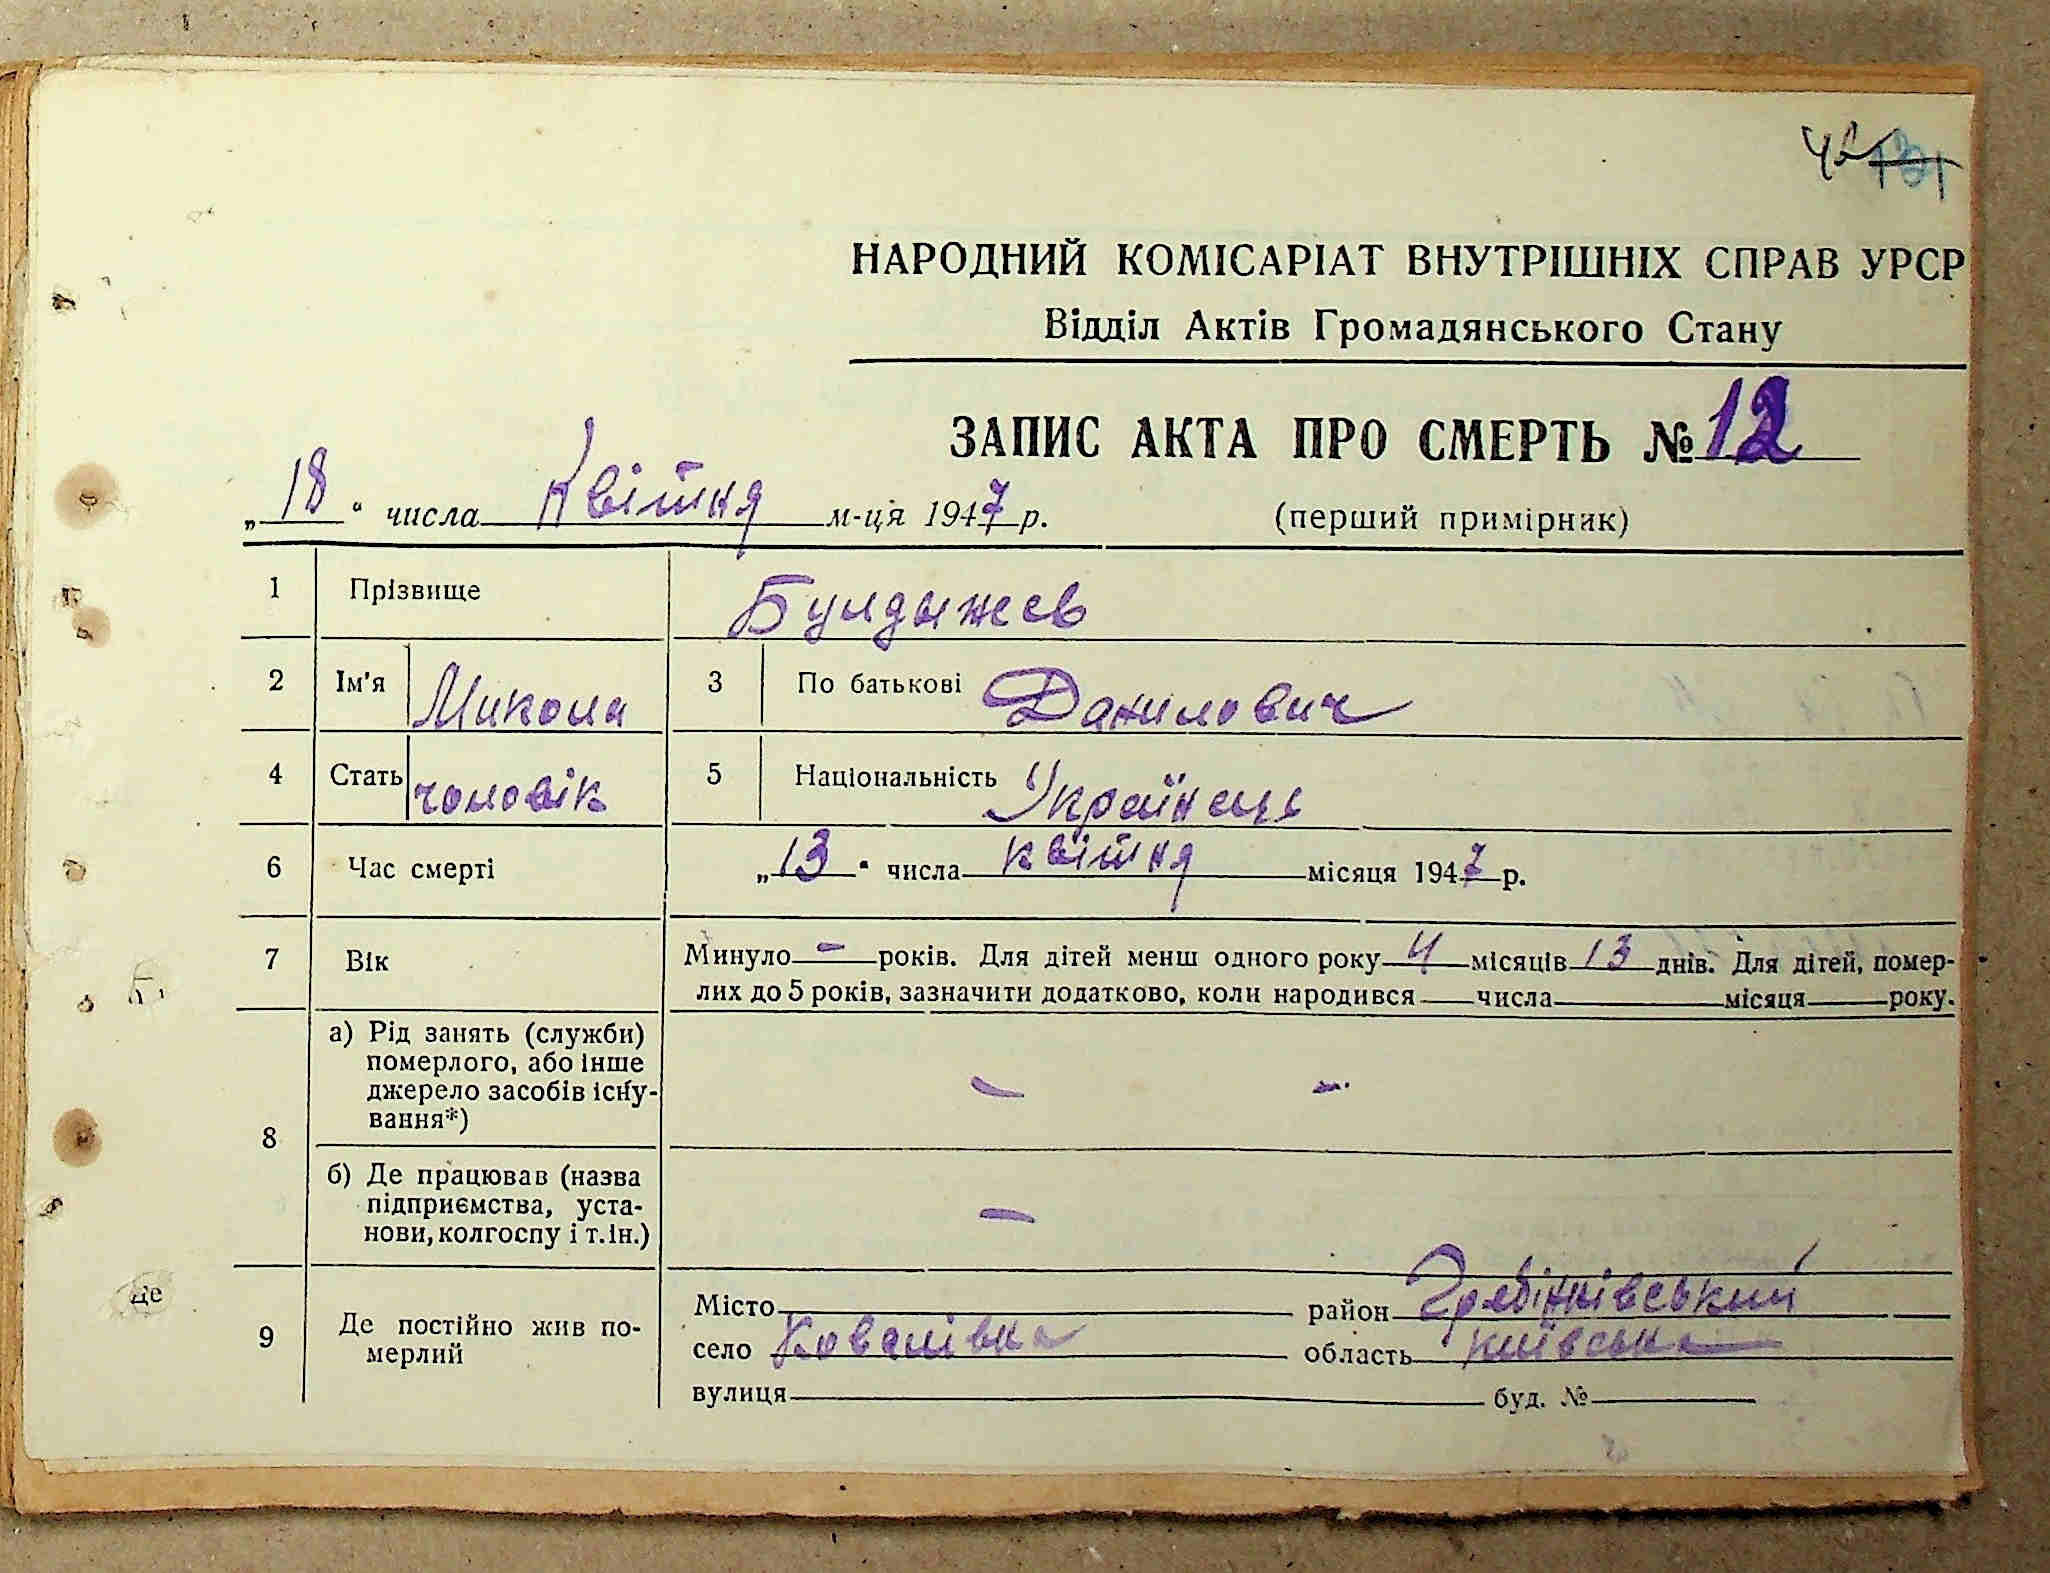 НАРОДНИЙ КОМІСАРІАТ ВНУТРІШНІХ СПРАВ УРСР
Відділ Актів Громадянського Стану
ЗАПИС АКТА ПРО СМЕРТЬ № 12
„18“ числа Квітня м-ця 1947 р. (перший примірник)
1 Прізвище Булдыжев
2 Ім'я Микола 3 По батькові Данилович
4 Стать чоловік 5 Національність Українець
6 Час смерті „13“ числа квітня місяця 1947 р.
7 Вік Минуло - років. Для дітей менш одного року 4 місяців 13 днів. Для дітей, помер-
лих до 5 років, зазначити додатково, коли народився числа місяця року.
8 а) Рід занять (служби)
померлого, або інше
джерело засобів існу-
вання*) - -
б) Де працював (назва
підприємства, уста-
нови, колгоспу і т. ін.) -
9 Де постійно жив по-
мерлий
Місто район Гребінківський
село Ковалівка область київська
вулиця буд. №
Це